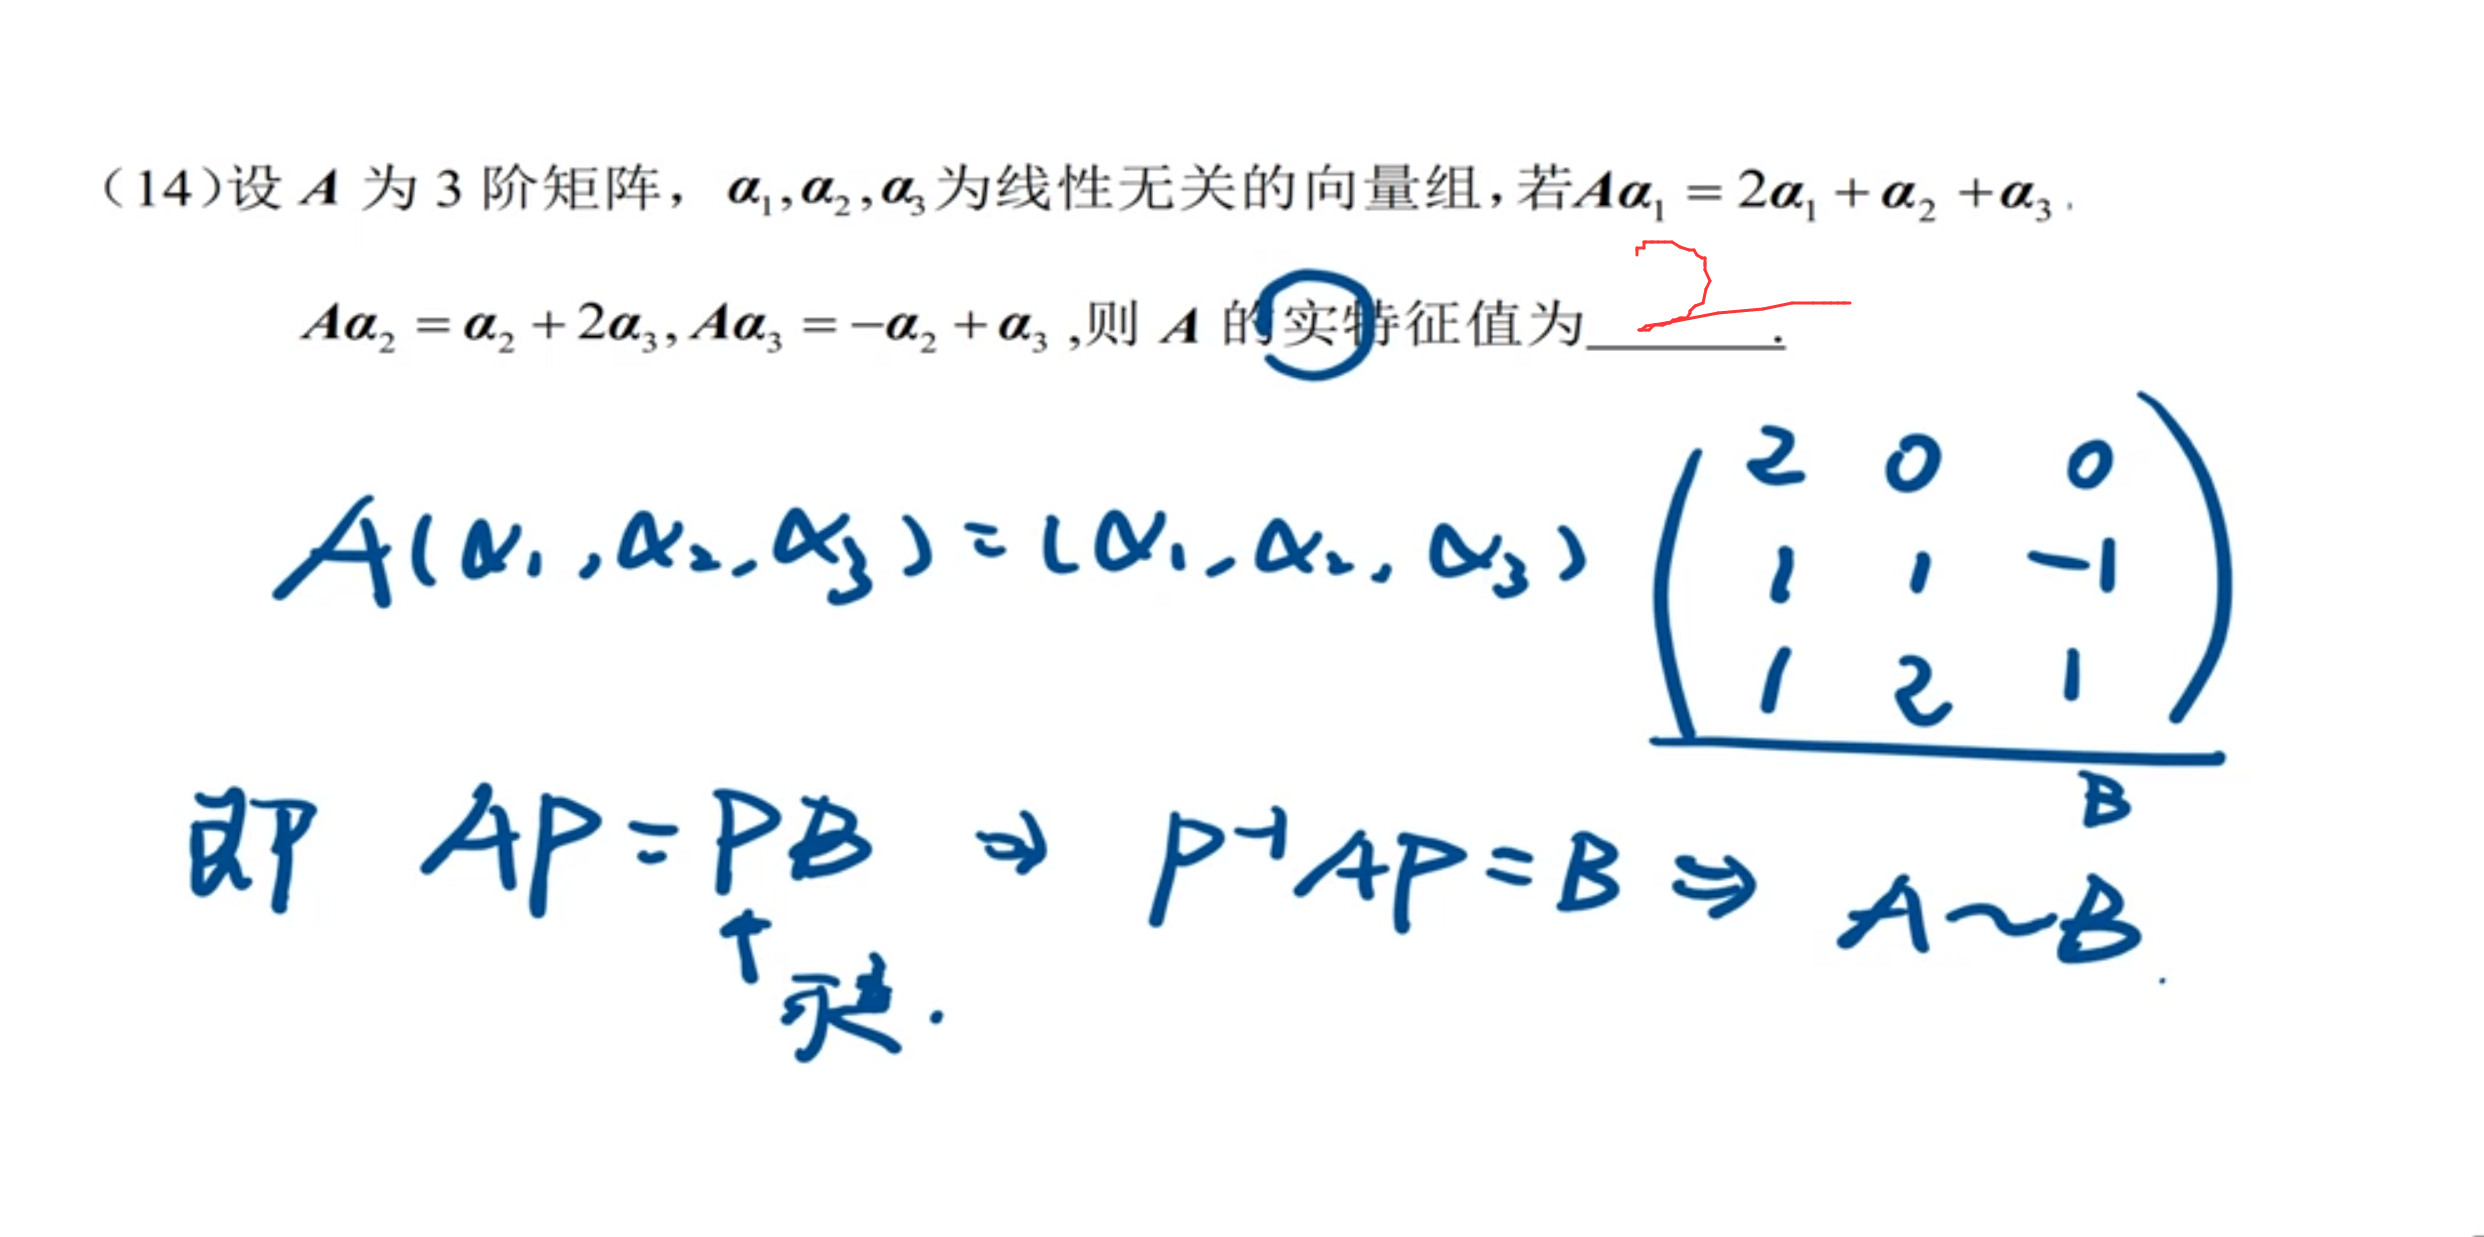 （14）设 A 为 3 阶矩阵， α₁,α₂,α₃为线性无关的向量组，若Aα₁ = 2α₁ + α₂ + α₃,
Aα₂ = α₂ + 2α₃, Aα₃ = −α₂ + α₃ ,则 A 的实特征值为______.
2
2 0 0
A(α₁,α₂,α₃) = (α₁,α₂,α₃) 1 1 −1
1 2 1
B
即 AP=PB ⇒ P⁻¹AP=B ⇒ A~B.
↑
可逆.